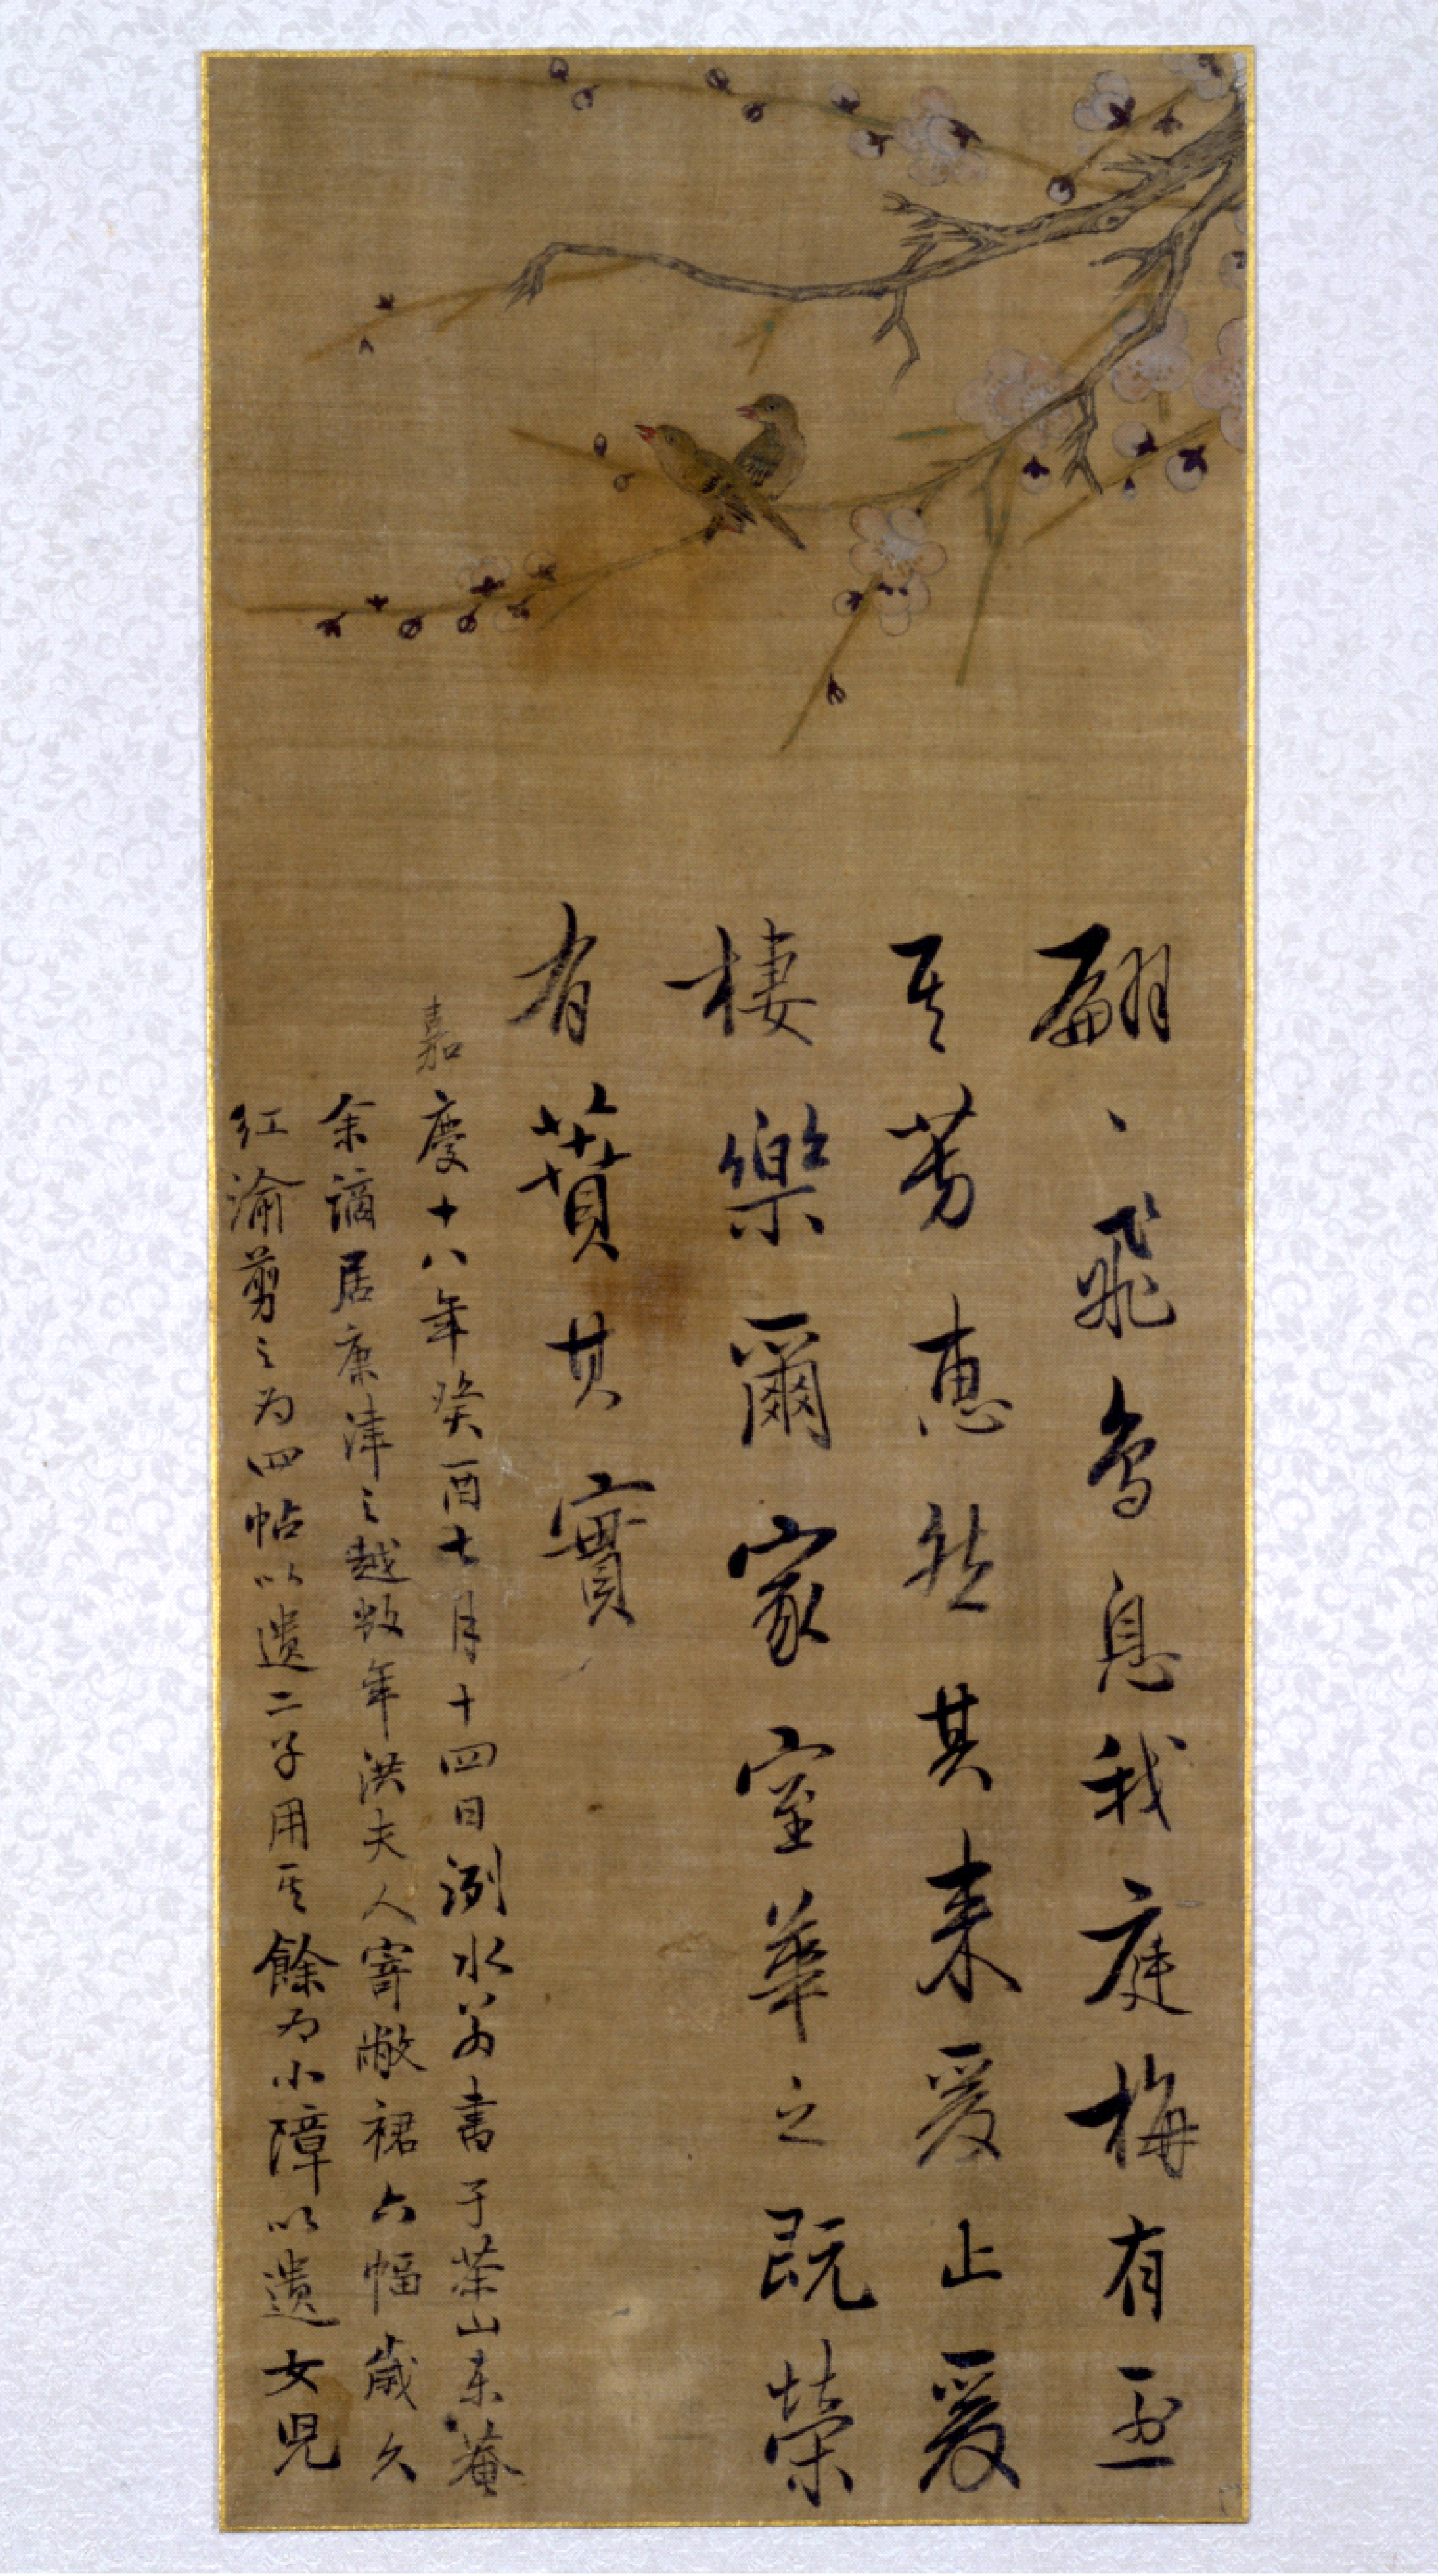 翩〻飛鳥息我庭梅有烝
其芳惠然其來爰止爰
棲樂爾家室華之旣榮
有蕡其實
嘉慶十八年癸酉七月十四日洌水翁書于茶山東菴
余謫居康津之越數年洪夫人寄敝裙六幅歲久
紅渝剪之為四帖以遺二子用其餘為小障以遺女兒